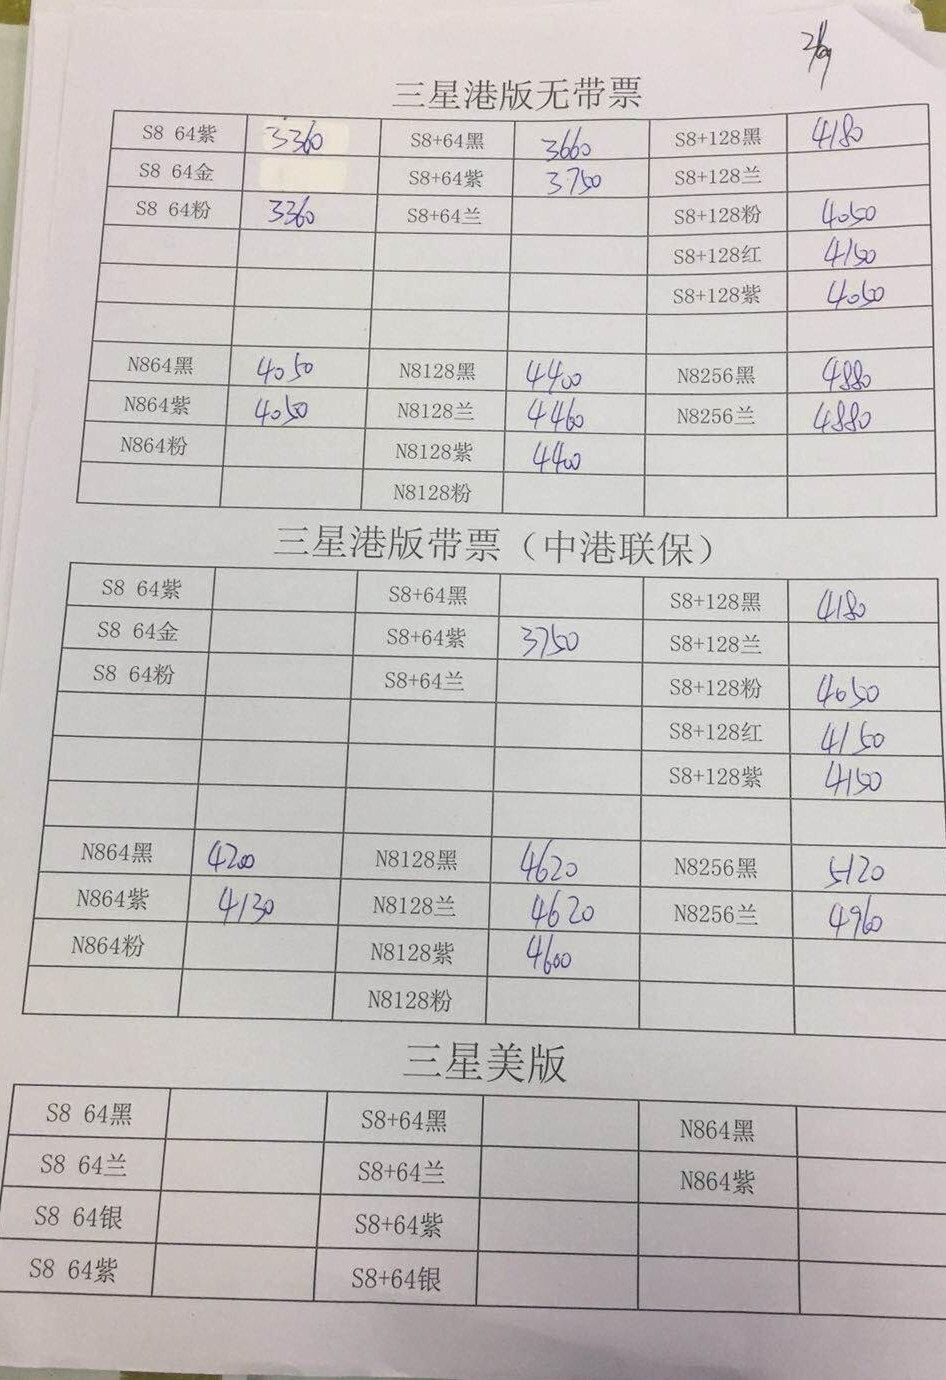 三星港版无带票
S8 64紫 3360 S8+64黑 3660 S8+128黑 4180
S8 64金 S8+64紫 3750 S8+128兰
S8 64粉 3360 S8+64兰 S8+128粉 4050
S8+128红 4150
S8+128紫 4050
N864黑 4050 N8128黑 4400 N8256黑 4880
N864紫 4050 N8128兰 4460 N8256兰 4880
N864粉 N8128紫 4400
N8128粉
三星港版带票（中港联保）
S8 64紫 S8+64黑 S8+128黑 4180
S8 64金 S8+64紫 3750 S8+128兰
S8 64粉 S8+64兰 S8+128粉 4050
S8+128红 4150
S8+128紫 4150
N864黑 4200 N8128黑 4620 N8256黑 5120
N864紫 4130 N8128兰 4620 N8256兰 4960
N864粉 N8128紫 4600
N8128粉
三星美版
S8 64黑 S8+64黑 N864黑
S8 64兰 S8+64兰 N864紫
S8 64银 S8+64紫
S8 64紫 S8+64银